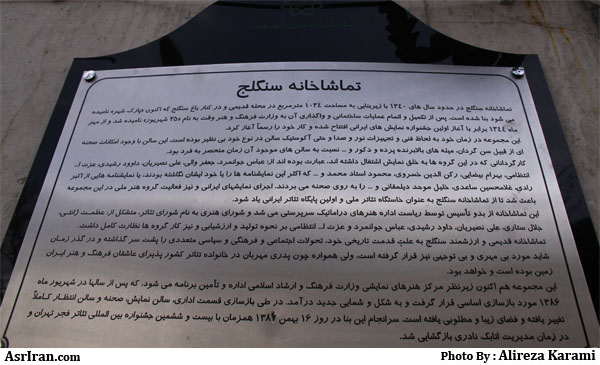 تماشاخانه سنگلج
تماشاخانه سنگلج در حدود سال های ۱۳۴۰ با زیربنایی به مساحت ۱۰۳۴ مترمربع در محله قدیمی و در کنار باغ سنگلج که اکنون «پارک شهر» نامیده
می شود بنا شده است. پس از تکمیل و اتمام عملیات ساختمانی و واگذاری آن به وزارت فرهنگ و هنر وقت به نام ۲۵ شهریور» نامیده شد و از مهر
ماه ۱۳۴۴ برابر با آغاز اولین جشنواره نمایش های ایرانی افتتاح شده و کار خود را رسماً آغاز کرد.
این مجموعه در زمان خود به لحاظ فنی و تجهیزات نور و صدا و حتی آکوستیک سالن در نوع خود بی نظیر بوده است. این سالن با وجود امکانات صحنه
ای از قبیل سن گردان، میله های بالابرنده پرده و دکور و ... نسبت به سالن های موجود آن زمان منحصر به فرد بود.
کارگردانانی که در این گروه ها به خلق نمایش اشتغال داشته اند، عبارت بوده اند از: عباس جوانمرد، جعفر والی، علی نصیریان، داوود رشیدی، عزت ا...
انتظامی، بهرام بیضایی، رکن الدین خسروی، محمود استاد محمد و ... که اکثر این نمایشنامه ها را یا خود ایشان نگاشته بودند، یا نمایشنامه هایی از اکبر
رادی، غلامحسین ساعدی، خلیل موحد دیلمقانی و ... را به روی صحنه می بردند. اجرای نمایشهای ایرانی و نیز فعالیت گروه هنر ملی در این مجموعه
باعث شد تا از تماشاخانه سنگلج به عنوان خاستگاه تئاتر ملی و اولین پایگاه تئاتر ایرانی یاد شود.
این تماشاخانه از بدو تأسیس توسط ریاست اداره هنرهای دراماتیک سرپرستی می شد و شورای هنری به نام شورای تئاتر، متشکل از: عظمت ژانتی،
جلال ستاری، علی نصیریان، داود رشیدی، عباس جوانمرد و عزت ا... انتظامی بر نحوه تولید و ارزشیابی و نیز کار گروه ها نظارت کامل داشت.
تماشاخانه قدیمی و ارزشمند سنگلج به علت قدمت تاریخی خود، تحولات اجتماعی و فرهنگی و سیاسی متعددی را پشت سر گذاشته و در گذر زمان
شاید مورد بی مهری و بی توجهی نیز قرار گرفته است، ولی همواره چون پدری مهربان در خانواده تئاتر کشور پذیرای عاشقان فرهنگ و هنر ایران
زمین بوده است و خواهد بود.
این مجموعه هم اکنون زیرنظر مرکز هنرهای نمایشی وزارت فرهنگ و ارشاد اسلامی اداره و تأمین برنامه می شود، که پس از سالها در شهریور ماه
۱۳۸۶ مورد بازسازی اساسی قرار گرفت و به شکل و شمایی جدید درآمد. در طی بازسازی قسمت اداری، سالن نمایش، صحنه و سالن انتظار کاملاً
تغییر یافته و فضای زیبا و مطلوبی یافته است. سرانجام این بنا در روز ۱۶ بهمن ۱۳۸۶ همزمان با بیست و ششمین جشنواره بین المللی تئاتر فجر تهران و
در زمان مدیریت اتابک نادری بازگشایی شد.
AsrIran.com
Photo By : Alireza Karami